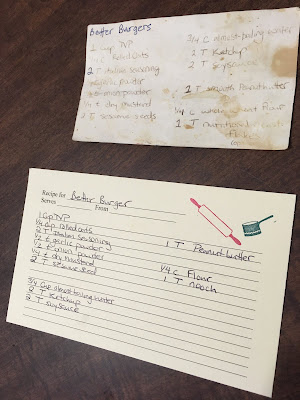 Better Burgers
1 cup TVP
rolled oats
2 T Italian seasoning
powder
onion powder
dry mustard
sesame seeds
3/4 C almost-boiling water
2 T Ketchup
2 T soysauce
1 T smooth Peanutbutter
1/4 C whole wheat flour
1 T nutritional yeast
flakes
Recipe for Better Burger
Serves From
1 cup TVP
1/4 cup rolled oats
2 T Italian seasoning
1/2 t garlic powder
1/2 t onion powder
1/4 t dry mustard
2 T sesame seed
3/4 Cup almost boiling water
2 T Ketchup
2 T soy sauce
1 T Peanut-butter
1/4 C Flour
1 T nooch